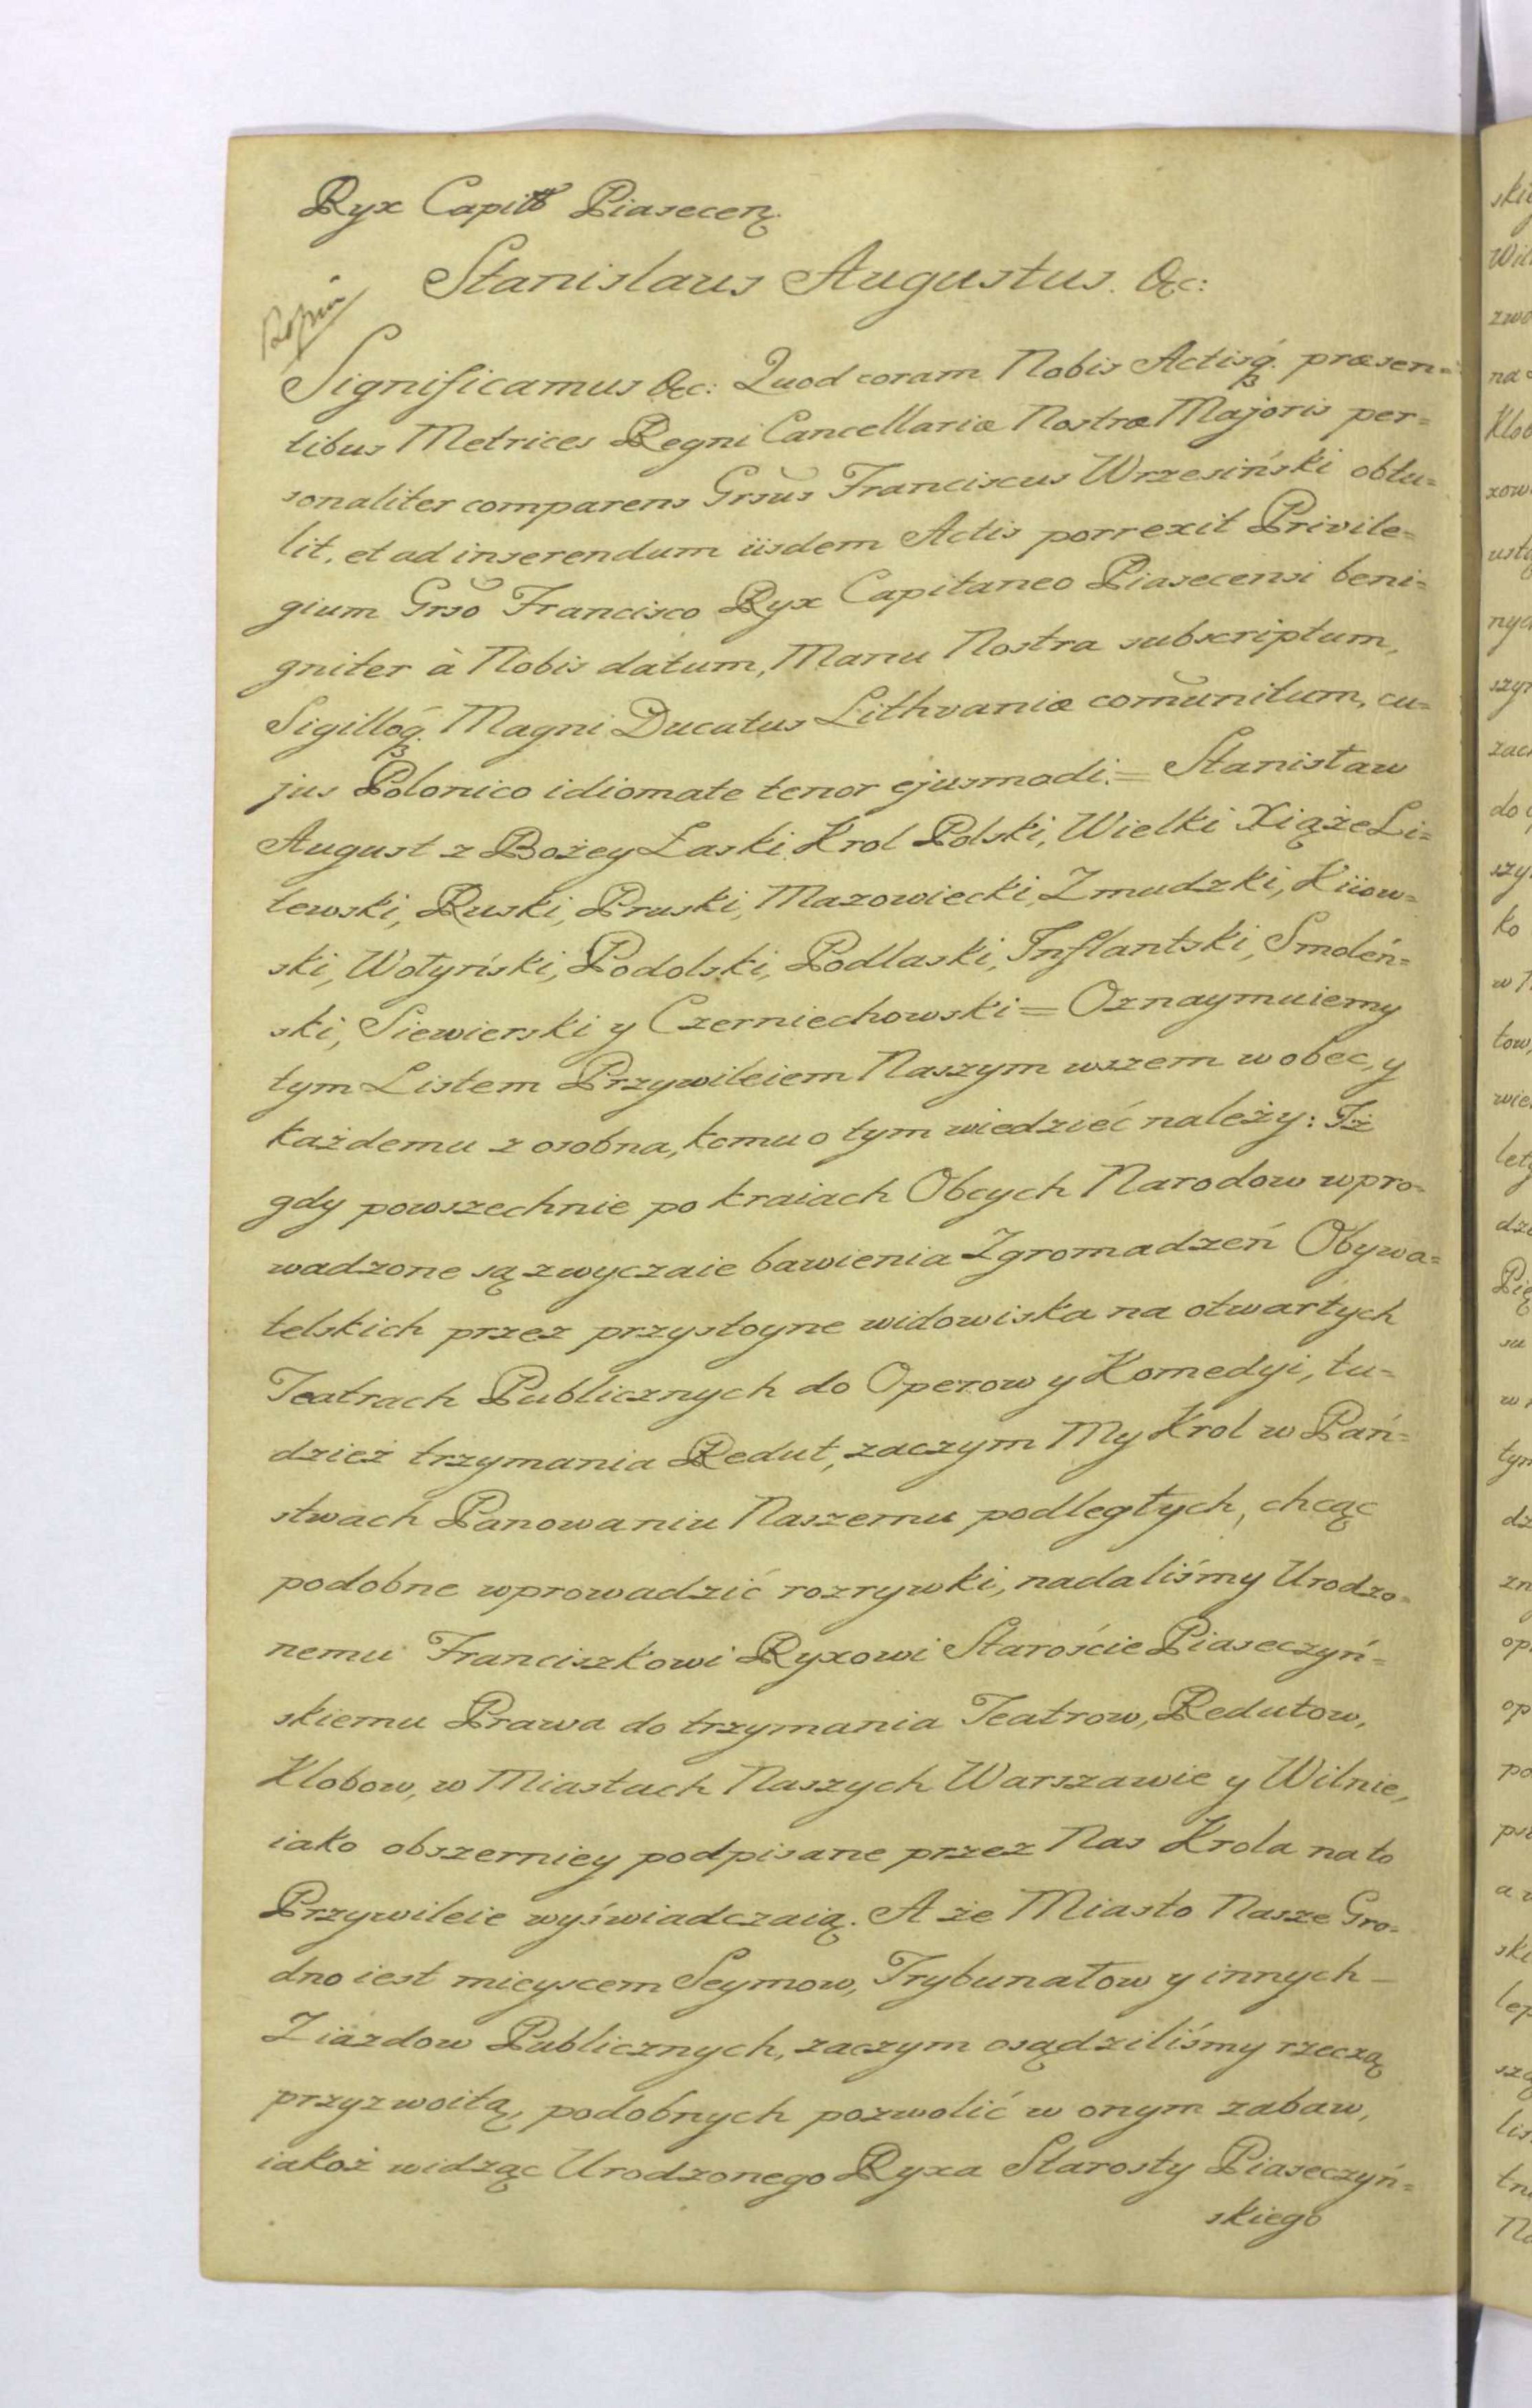 Ryx Capitō Piasecen.
Stanislaus Augustus. &c:
Significamus &c: Quod coram Nobis Actisq́. præsen=
tibus Metrices Regni Cancellariæ Nostræ Majoris per=
sonaliter comparens Grsŭs Franciscus Wrzesiński obtu=
lit, et ad inserendum iisdem Actis porrexit Privile=
gium Grsŏ Francisco Ryx Capitaneo Piasecensi beni=
gniter à Nobis datum, Manu Nostra subscriptum,
Sigilloq́. Magni Ducatus Lithvaniæ com̆unitum, cu=
jus Polonico idiomate tenor ejusmodi.= Stanisław
August z Bożey Łaski Krol Polski, Wielki Xiąże Li=
tewski, Ruski, Pruski, Mazowiecki, Zmudzki, Kiiow=
ski, Wołyński, Podolski, Podlaski, Inflantski, Smoleń=
ski, Siewierski y Czerniechowski = Oznaymuiemy
tym Listem Przywileiem Naszym wszem wobec, y
każdemu z osobna, komu o tym wiedzieć należy: Iż
gdy powszechnie po kraiach Obcych Narodow wpro=
wadzone są zwyczaie bawienia Zgromadzeń Obywa=
telskich przez przystoyne widowiska na otwartych
Teatrach Publicznych do Operow y Komedyi, tu=
dzież trzymania Redut, zaczym My Krol w Pań=
stwach Panowaniu Naszemu podległych, chcąc
podobne wprowadzić rozrywki, nadaliśmy Urodzo=
nemu Franciszkowi Ryxowi Staroście Piaseczyń=
skiemu Prawa do trzymania Teatrow, Redutow,
Klobow, w Miastach Naszych Warszawie y Wilnie,
iako obszerniey podpisane przez Nas Krola na to
Przywileie wyświadczaią. A że Miasto Nasze Gro=
dno iest mieyscem Seymow, Trybunałow y innych
Ziazdow Publicznych, zaczym osądziliśmy rzeczą
przyzwoitą, podobnych pozwolić w onym zabaw,
iakoż widząc Urodzonego Ryxa Starosty Piaseczyń=
skiego